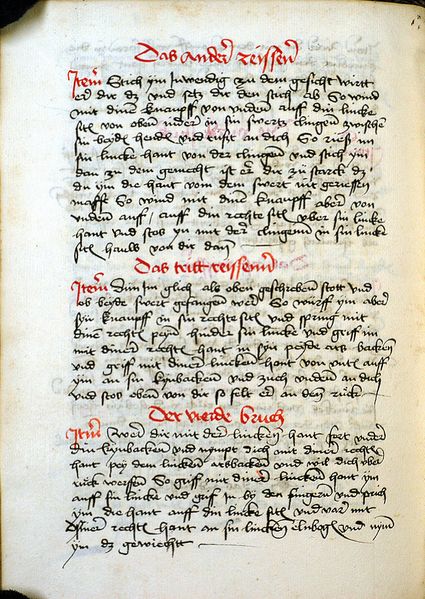 Das ander reissen
Item Stich ym Inwendig zu dem gesicht wirtt
er dir dz vnd setz dir den stich ab So wind
mit dinem knaupff von vnden auff din lincke
sitt von oben nider in sin swert clingen zwischen
sin beyden henden vnd rist an dich So
sin lincke hant von der clingen vnd stich ym
dan zu dem gemecht ist er dir zu starck dz
du ym die hant vom dem swert nit gerissen
magst So wind mit dinem knaupff aber von
vnden auff / auff din rechte sitt vber sin lincke
hant vnd stos yn mit der clingen in sin lincke
sitt hauls von dir dan
Das tritt reissenn
Item dun Im glich als oben geschreben stott vnd
ob beyde swert gefangen wer So würff ym aber
den knaupff in sin rechte sitt vnd spring mit
dinem rechten peyn hinder sin lincke vnd griff im
mit diner rechten hant in syn peyde ars backen
vnd griff mit diner lincken hant von vnten auff
ym an sin kynbacken vnd zuch vnden an dich
vnd stos oben von dir so felt er an den rück
Der vierde bruch
Item wer dir mit der lincken hant fert vnder
din kynbacken vnd nympt dich mit diner rechten
hant pey dem lincken arsbacken vnd wil dich vber
rück werffen So griff mit diner lincken hant ym
auff sin lincke vnd griff in by den fingern vnd prich
ym die hant auff din lincke sitt vnd var mit
diner rechten hant an sin lincken elnbogen vnd nym
ym dz gewicht